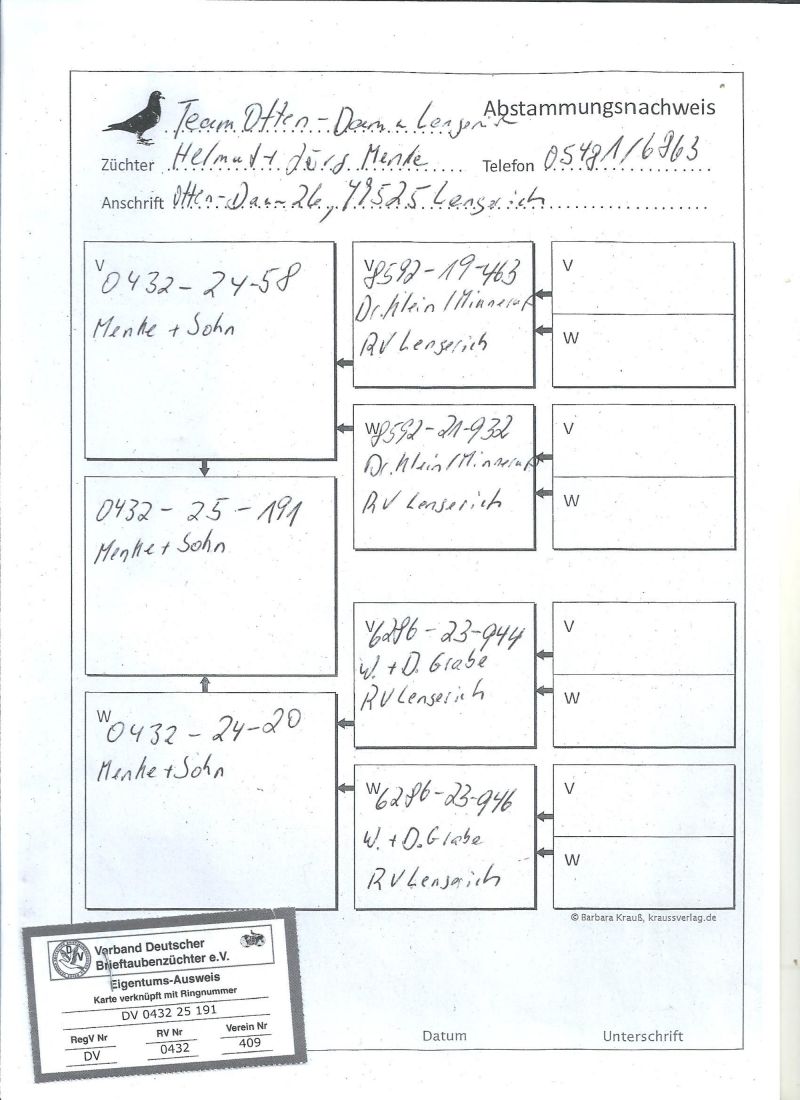 Abstammungsnachweis
Team Otten-Damm Lengerich
Züchter Helmut + Jürg Menke Telefon 05481/6863
Anschrift Otten-Damm 26, 49525 Lengerich
V 0432-24-58
Menke + Sohn
V 8592-19-463
Dr. Klein / Minnerup
RV Lengerich
V
W
W 8592-21-932
Dr. Klein / Minnerup
RV Lengerich
V
W
0432-25-191
Menke + Sohn
V 6286-23-944
W. + D. Grabe
RV Lengerich
V
W
W 0432-24-20
Menke + Sohn
W 6286-23-946
W. + D. Grabe
RV Lengerich
V
W
© Barbara Krauß, kraussverlag.de
Verband Deutscher
Brieftaubenzüchter e.V.
Eigentums-Ausweis
Karte verknüpft mit Ringnummer
DV 0432 25 191
RegV Nr RV Nr Verein Nr
DV 0432 409
Datum Unterschrift